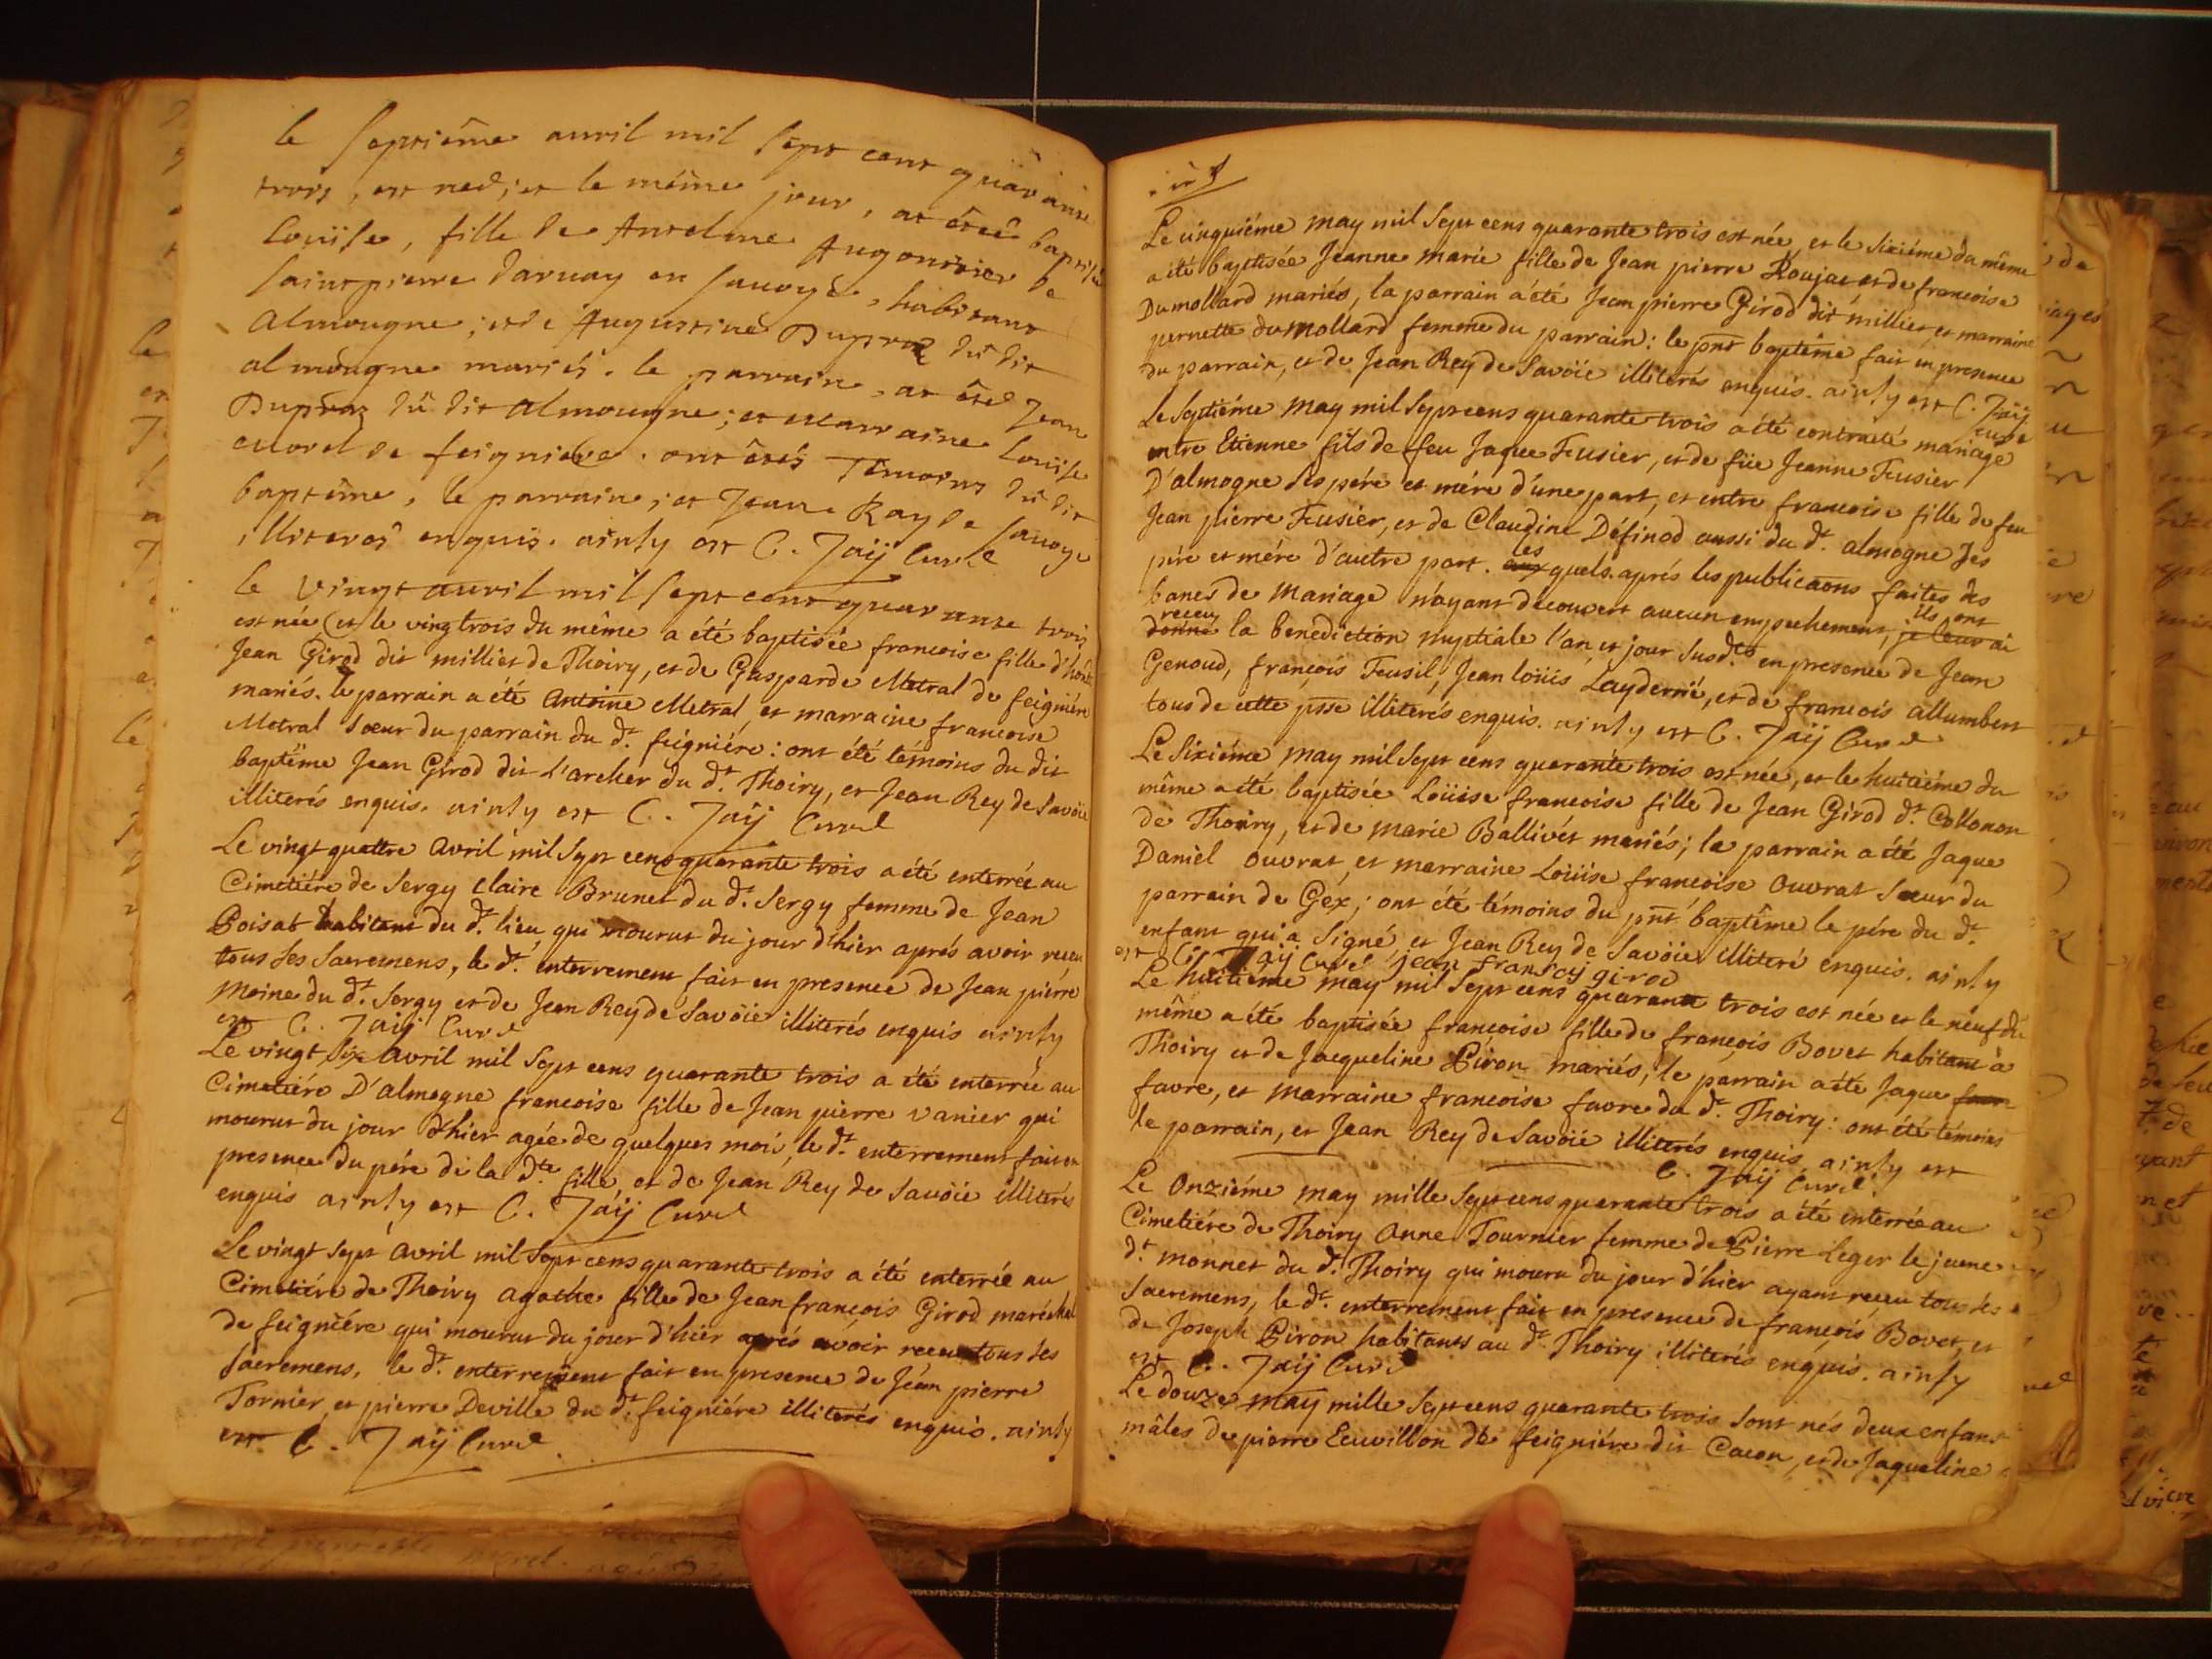 le septiême auril mil sept cent quarante
trois, est neé; et le même jour, at étéé baptisée
Louise, fille de Anselme Augonirier de
saint pierre daruay en sauoye, habitant
almougne; et de Augustine Dupraz dû dit
almougne mariés. le parrain, at êté Jean
Dupraz dû dit almougne; et marraine Louise
morel de feigniere. ont êtés Têmoins dû dit
baptême, le parrain; et Jean Ray de sauoye
illiterés enquis. ainsy est C. Jaÿ Curé
le vingt auril mil sept cent quarante trois
est née et le vingtrois du même a été baptisée francoise fille d'hon
Jean Girod dit milliet de Thoiry, et de Gasparde Metral de feigniére
mariés. le parrain a été Antoine Metral, et marraine francoise
Metral sœur du parrain du dt. feigniére: ont été témoins du dit
baptême Jean Girod dit L'archer du dt. Thoiry, et Jean Rey de Savoie
illiterés enquis. ainsy est C. Jaÿ Curé
Le vingt quattre avril mil sept cens quarante trois a été enterrée au
Cimetiére de Sergy Claire Brunet du dt. Sergy femme de Jean
Poisat habitant du dt. lieu qui mourut du jour d'hier aprés avoir receu
tous ses sacremens, le dt. enterrement fait en presence de Jean pierre
Moine du dt. Sergy et de Jean Rey de Savöie illiterés enquis ainsy
est C. Jaÿ Curé
Le vingt six avril mil sept cens quarante trois a été enterrée au
Cimetiére D'almogne francoise fille de Jean pierre vanier qui
mourut du jour d'hier agée de quelques mois, le dt. enterrement fait en
presence du pére de la dte. fille, et de Jean Rey de Savöie illiterés
enquis ainsy est C. Jaÿ Curé
Le vingt sept avril mil sept cens quarante trois a été enterrée au
Cimetiére de Thoiry agathe fille de Jean françois Girod maréchal
de feigniére qui mourut du jour d'hier aprés avoir receu tous ses
sacremens, le dt. enterrement fait en presence de Jéan pierre
Tornier, et pierre Deville du dt. feigniére illiterés enquis. ainsy
est C. Jaÿ Curé
Le cinquiéme may mil sept cens quarante trois est née, et le sixiéme du même
a été baptisée Jeanne marie fille de Jean pierre Roujac et de francoise
Dumollard mariés, la parrain a été Jean pierre Girod dit milliet, et marraine
pernette dumollard femme du parrain: le pnt baptéme fait en presence
du parrain, et de Jean Rey de Savöie illiterés enquis. ainsy est C. Jaÿ
curé
Le septiéme may mil sept cens quarante trois a été contracté mariage
entre Etienne fils de feu Jaque Fusier, et de füe Jeanne Fusier
D'almogne ses pére et mére d'une part, et entre francoise fille de feu
Jean pierre Fusier, et de Claudine Définod aussi du dt. almogne ses
pére et mére d'autre part. les aux quels aprés les publicaons faites des
bancs de mariage n'ayant découvert aucun empechement, ils ont je leur ai
receu donné la benediction nuptiale l'an, et jour susdts. en presence de Jean
Genoud, françois Fusil, Jean loüis Layderrié, et de francois allumbert
tous de cette psse illiterés enquis. ainsy est C. Jaÿ Curé
Le sixiéme may mil sept cens quarante trois est née, et le huitiéme du
même a été baptisée Loüise francoise fille de Jean Girod dt. Collonon
de Thoiry, et de marie Ballivét mariés; le parrain a été Jaque
Daniel ouvrat, et marraine Loüise françoise ouvrat sœur du
parrain de Géx; ont été témoins du pnt baptême le pére du dt.
enfant qui a signé et Jean Rey de Savöie illiteré enquis. ainsy
est C. Jaÿ Curé jean fransoy girod
Le huitiéme may mil sept cens quarante trois est née et le neuf du
même a été baptisée françoise fille de françois Bovet habitant à
Thoiry et de Jacqueline Piron mariés, le parrain a été Jaque
favre, et marraine francoise favre du dt. Thoiry: ont été témoins
le parrain, et Jean Rey de Savöie illiterés enquis ainsy est
C. Jaÿ Curé
Le Onziéme may mille sept cens quarante trois a été enterrée au
Cimetiére de Thoiry Anne Tournier femme de Pierre Leger le jeune
dt. monnet du dt. Thoiry qui mouru du jour d'hier ayant receu tous ses
sacremens, le dt. enterrement fait en presence de françois Bovet, et
de Joseph Piron habitants au dt. Thoiry illiterés enquis. ainsy
est C. Jaÿ Curé
Le douze may mille sept cens quarante trois sont nés deux enfans
mâles de pierre Ecuvillon de feigniére dit Cacon, et de Jaqueline